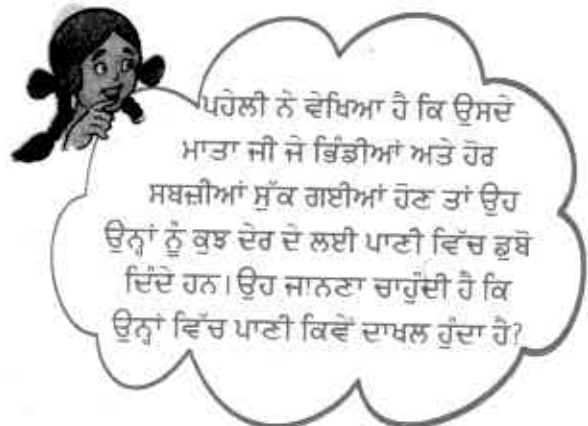 ਪਹੇਲੀ ਨੇ ਵੇਖਿਆ ਹੈ ਕਿ ਉਸਦੇ
ਮਾਤਾ ਜੀ ਜੇ ਭਿੰਡੀਆਂ ਅਤੇ ਹੋਰ
ਸਬਜ਼ੀਆਂ ਸੁੱਕ ਗਈਆਂ ਹੋਣ ਤਾਂ ਉਹ
ਉਨ੍ਹਾਂ ਨੂੰ ਕੁਝ ਦੇਰ ਦੇ ਲਈ ਪਾਣੀ ਵਿੱਚ ਡੁਬੋ
ਦਿੰਦੇ ਹਨ। ਉਹ ਜਾਨਣਾ ਚਾਹੁੰਦੀ ਹੈ ਕਿ
ਉਨ੍ਹਾਂ ਵਿੱਚ ਪਾਣੀ ਕਿਵੇਂ ਦਾਖਲ ਹੁੰਦਾ ਹੈ?